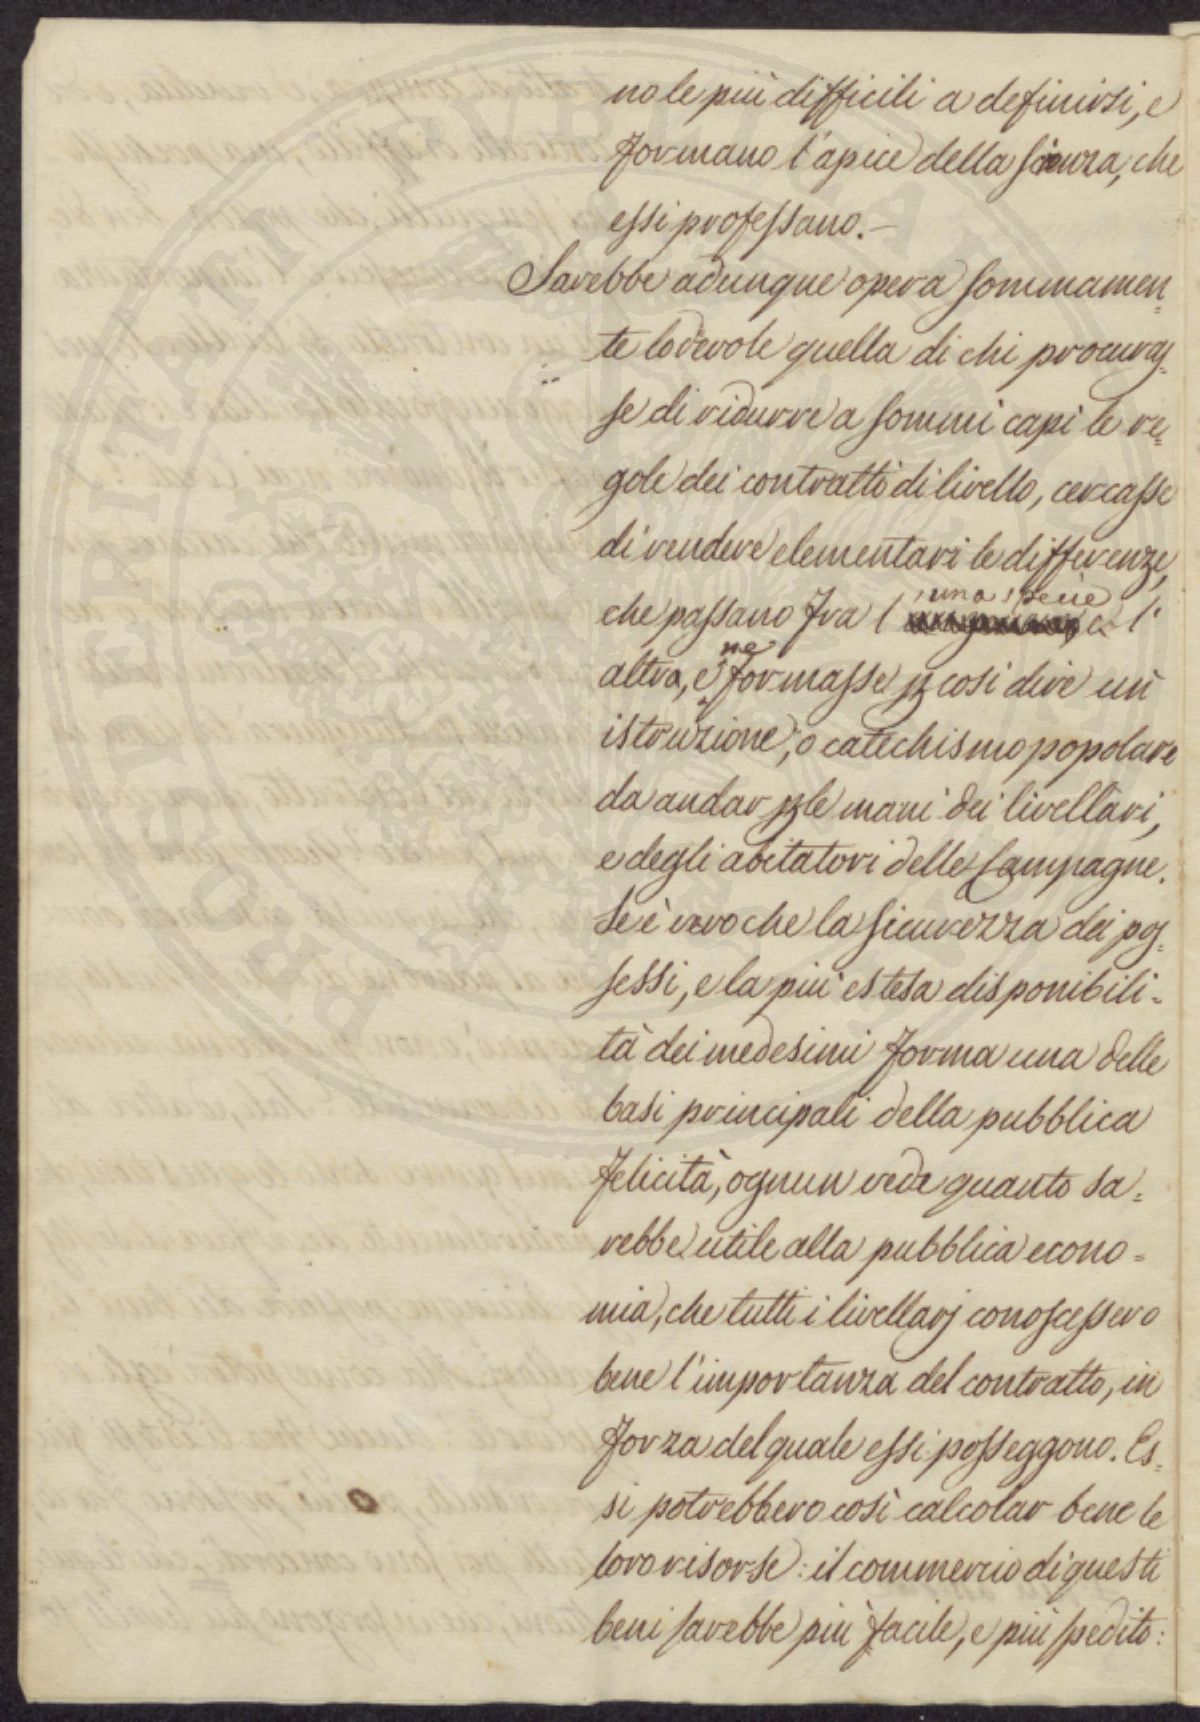 no le più difficili a definirsi, e
formano l'apice della scienza, che
essi professano.-
Sarebbe adunque opera sommamen=
te lodevole quella di chi procuras=
se di ridurre a sommi capi le re=
gole dei contratti di livello, cercasse
di rendere elementari le differenze,
una specie
che passano fra l' e l'
ne
altra, e formasse p così dire un
istruzione, o catechismo popolare
da andar p le mani dei livellari,
e degli abitatori delle Campagne.
Se è vero che la sicurezza dei pos=
sessi, e la più estesa disponibili=
tà dei medesimi forma una delle
basi principali della pubblica
felicità, ognun vede quanto sa=
rebbe utile alla pubblica econo=
mia, che tutti i livellarj conoscessero
bene l'importanza del contratto, in
forza del quale essi posseggono. Es=
si potrebbero così calcolar bene le
loro risorse: il commercio di questi
beni sarebbe più facile, e più spedito:
PROSPERITATI PVBLICAE